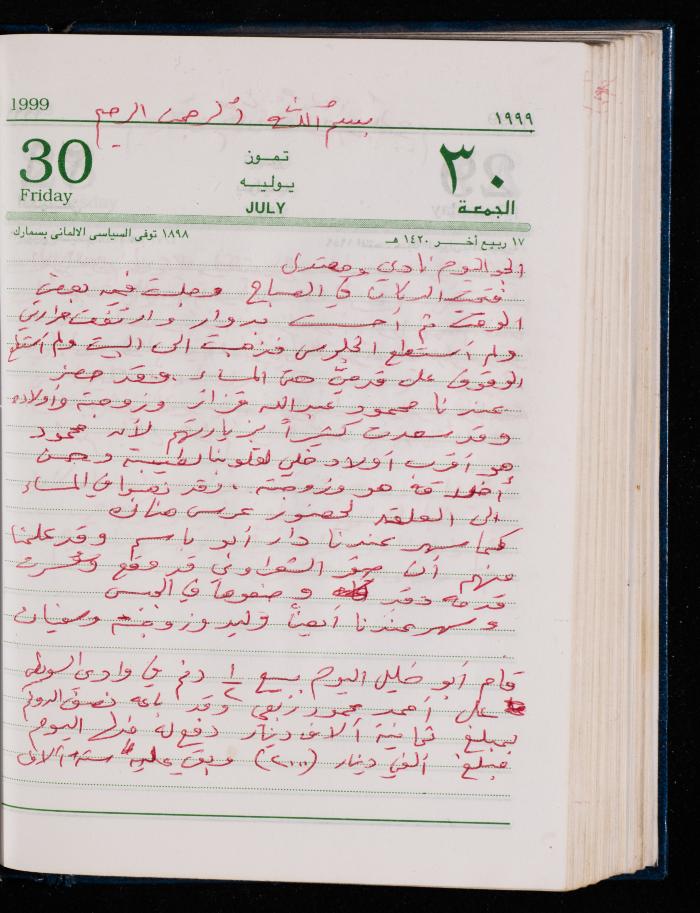 1999
بسم الله الرحمن الرحيم
١٩٩٩
30
Friday
تمــوز
يـوليــه
JULY
٣٠
الجمعة
١٧ ربيع آخــر ١٤٢٠ هـ
١٨٩٨ توفى السياسى الالمانى بسمارك
الجو اليوم نادي ومعتدل
فتحت الدكان في الصباح وجلست فيه بعض
الوقت ثم أحسست بدوار وارتفعت حرارتي
ولم استطع الجلوس فذهبت الى البيت ولم استطع
الوقوف على قدميّ حتى المساء. وقد حضر
عندنا محمود عبدالله قزاز وزوجته وأولاده
وقد سعدت كثيراً بزيارتهم لأن محمود
هو أقرب أولاد خالي لقلوبنا لطيبته وحسن
أخلاقه هو وزوجته. وقد ذهبوا في المساء
الى لحضور عرس هناك
كما سهر عندنا دار أبو باسم وقد علمنا
منهم أن الشعراوي قد وقع وكسرت
قدمه وقد وضعوها في الجبس
وسهر عندنا أيضاً وليد وزوجته وسفيان
قام أبو خليل اليوم ببيع ½ دنم في وادي
على أحمد محمود وقد باعه نصف الدونم
بمبلغ ثمانية آلاف دينار دفع له منها اليوم
مبلغ ألفي دينار (٢٠٠٠) وبقي عليه ستة آلاف